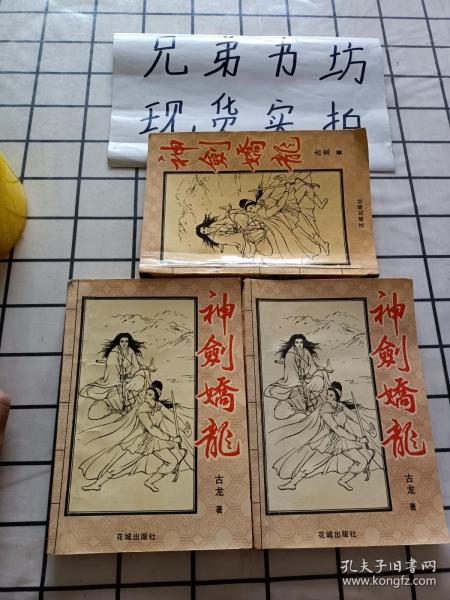 兄弟书坊
现货实拍
神劍嬌龍
古龙 著
花城出版社
神劍嬌龍
古龙 著
花城出版社
神劍嬌龍
古龙 著
花城出版社
孔夫子旧书网
www.kongfz.com